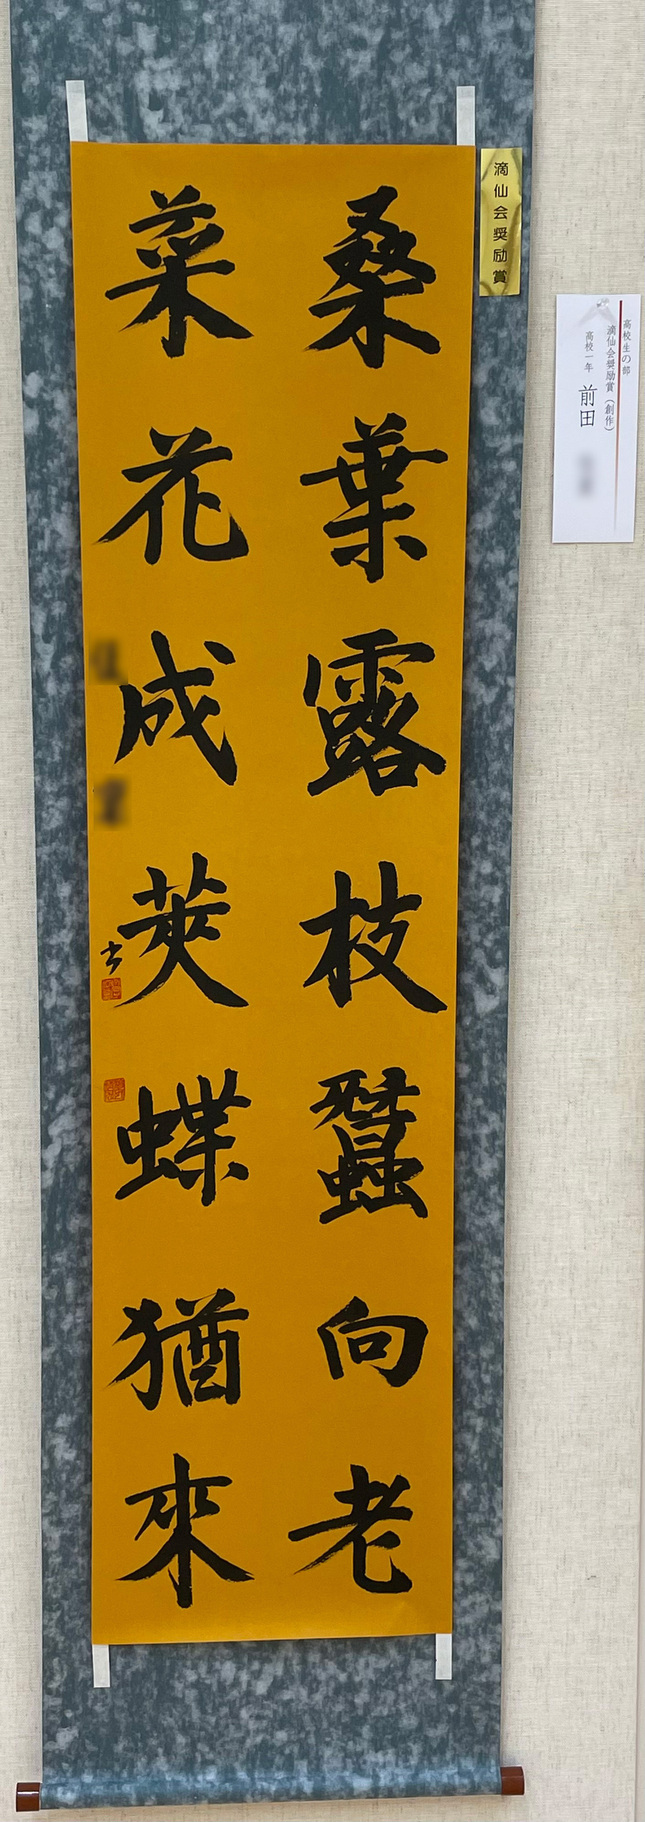 桑葉露枝蠶向老
菜花成莢蝶猶來
滴仙会奨励賞
高校生の部
滴仙会奨励賞（創作）
高校一年 前田